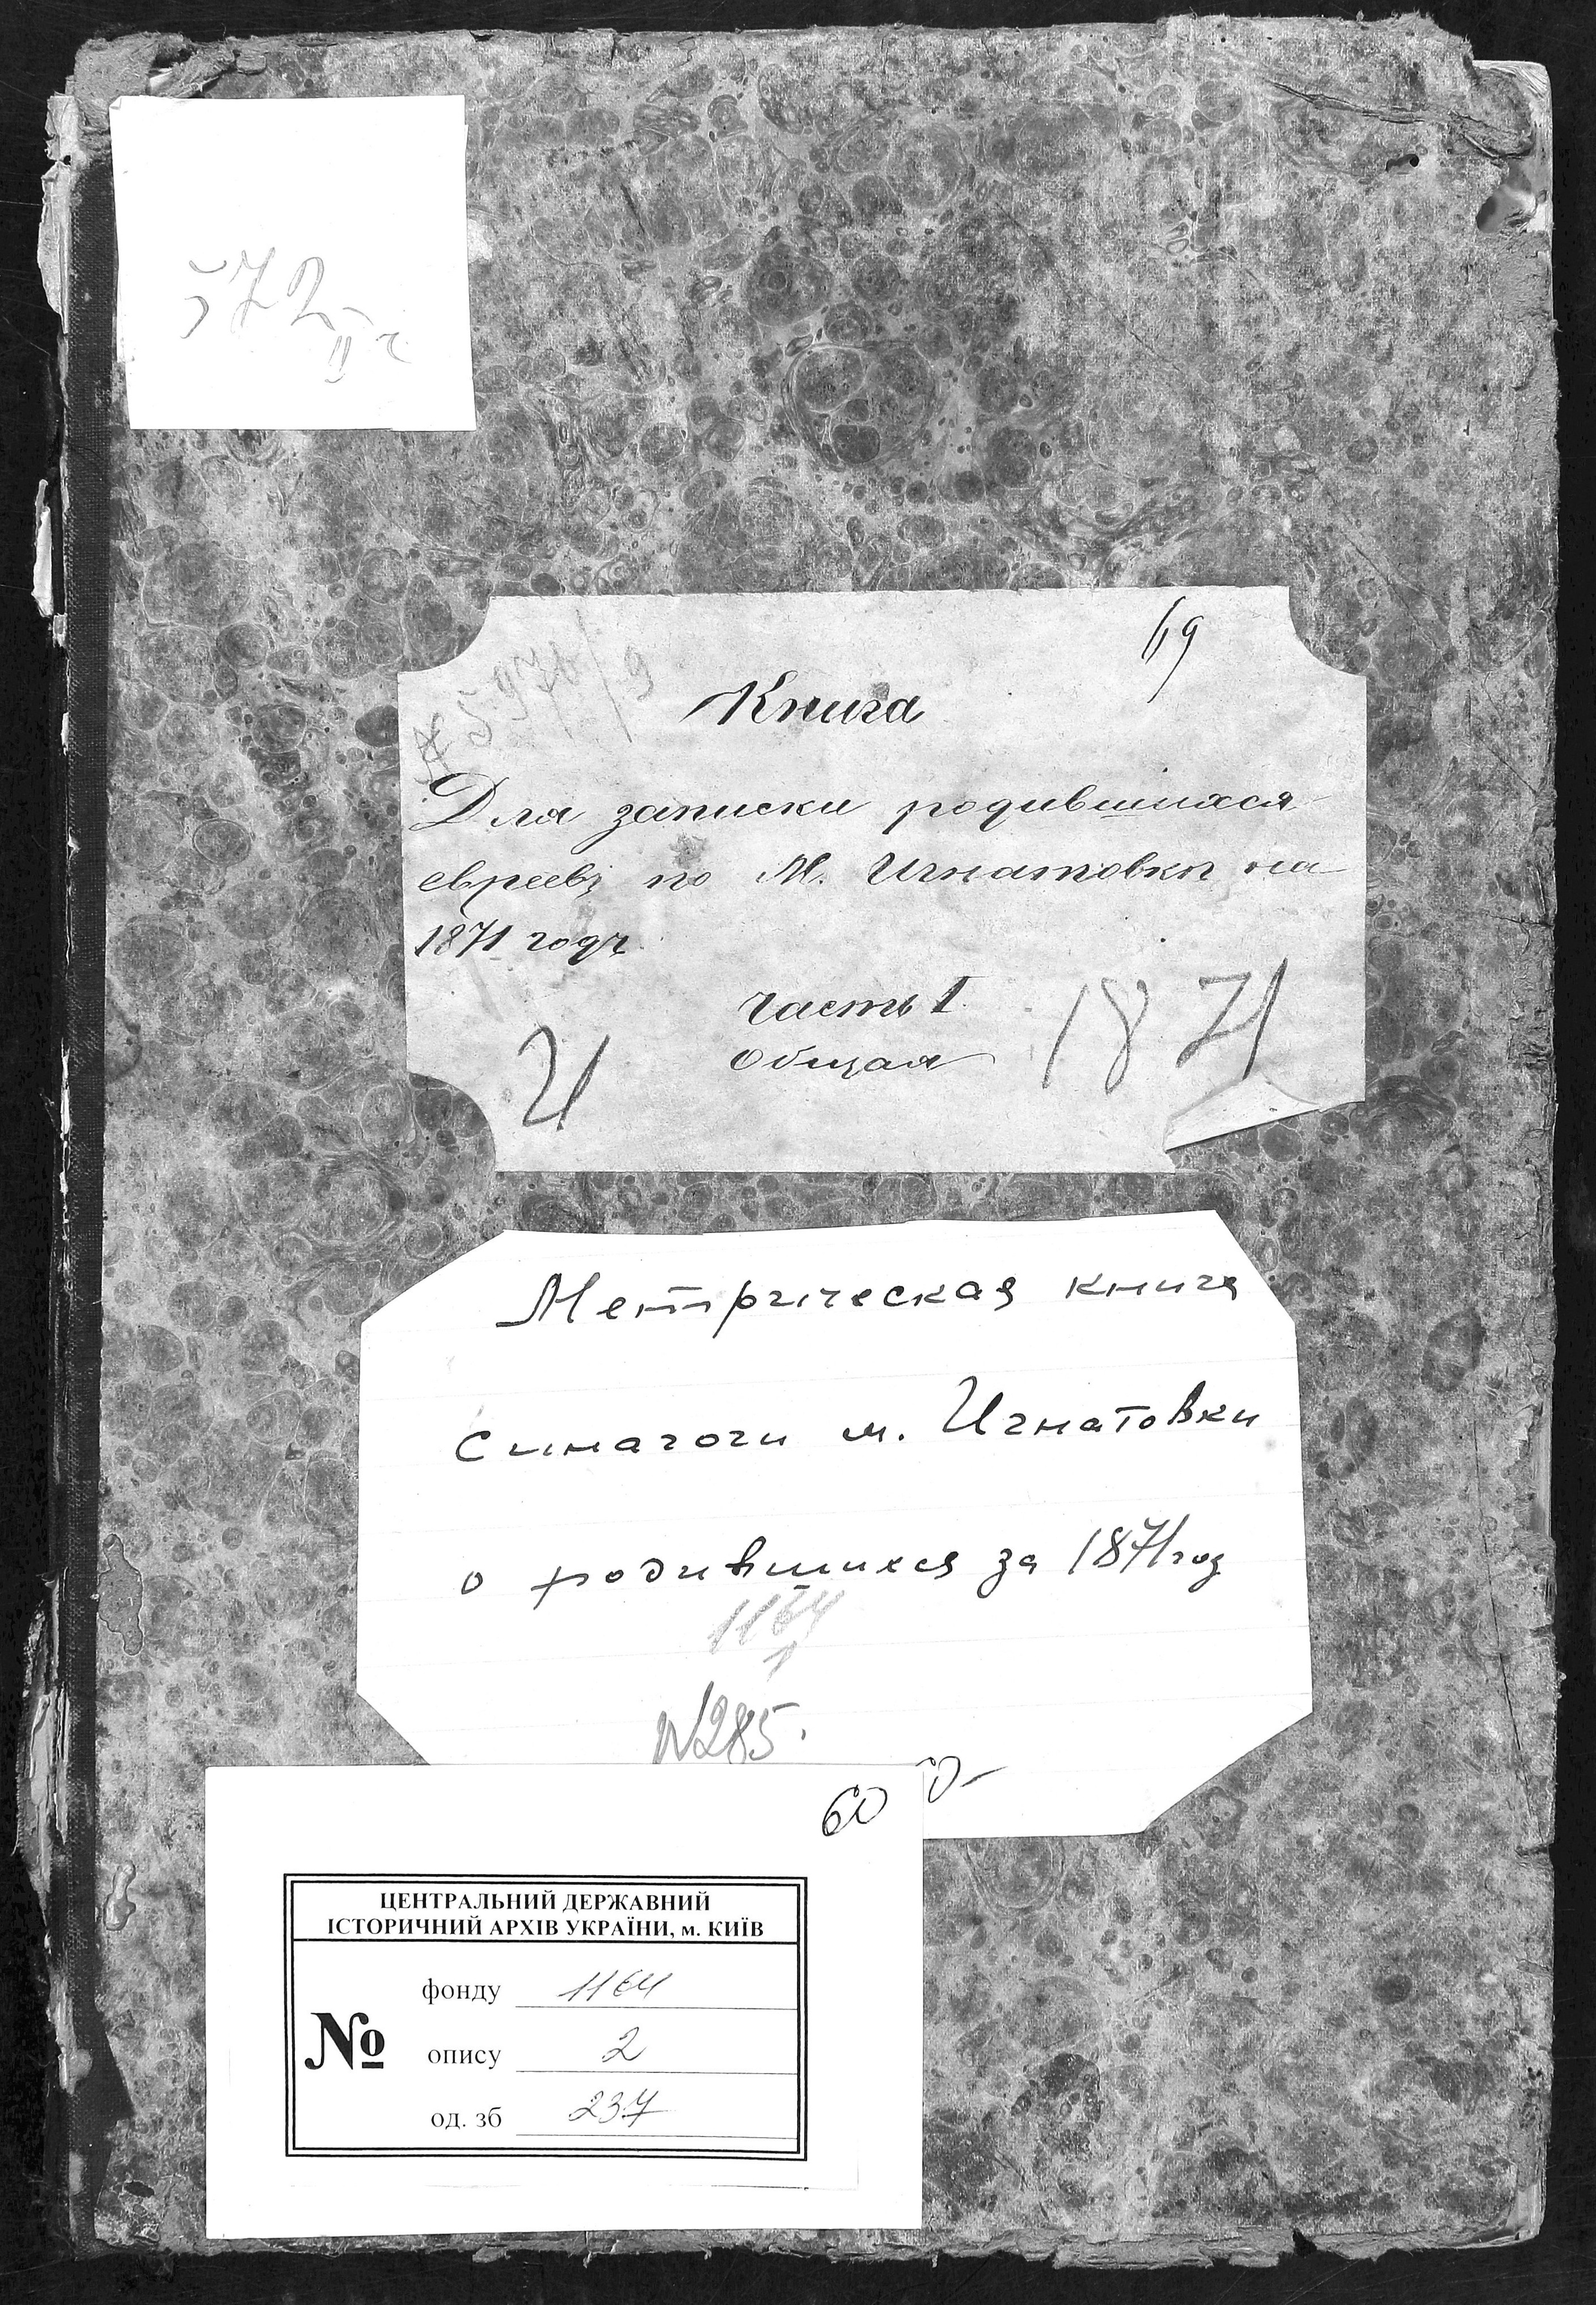 572
II ч
69
5976/9
Книга
Для записки родившихся
евреевъ по М. Игнатовкѣ на
1871 годъ
Часть I
Общая
И
1871
Метрическая книга
синагоги м. Игнатовки
о родившихся за 1871 год
1164
1
№285.
60
ЦЕНТРАЛЬНИЙ ДЕРЖАВНИЙ
ІСТОРИЧНИЙ АРХІВ УКРАЇНИ, м. КИЇВ
№
фонду 1164
опису 2
од. зб 237